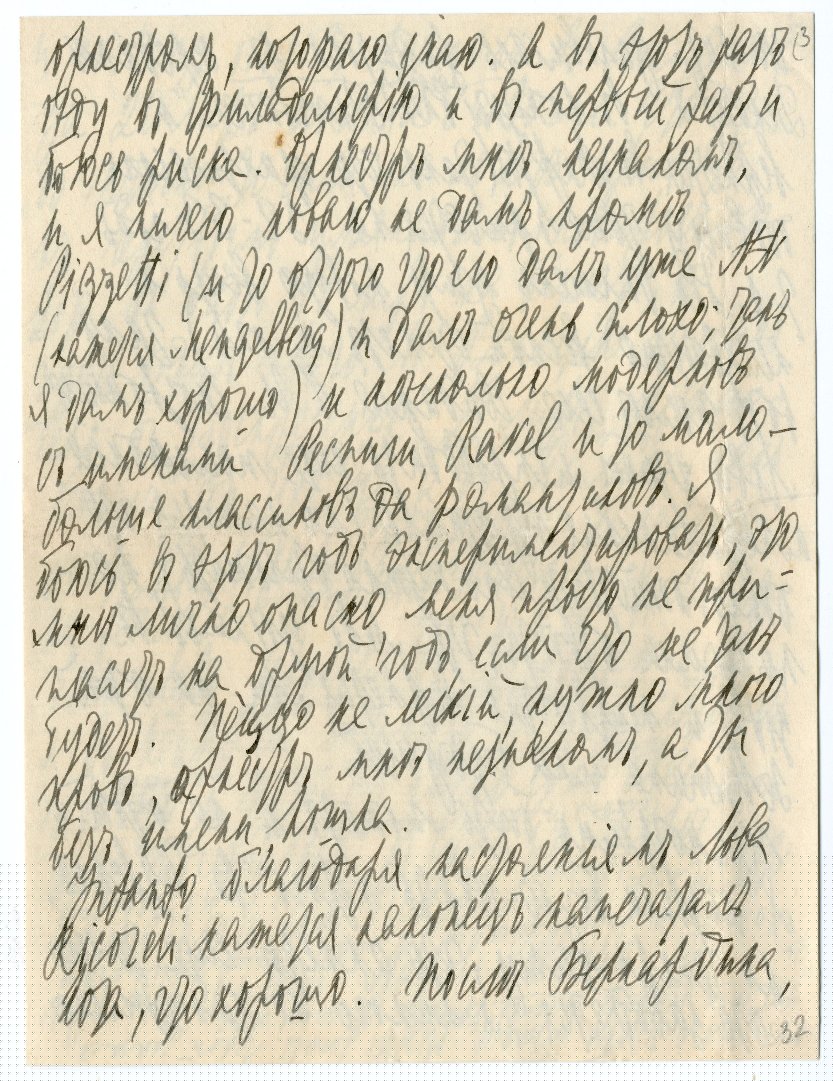 оркестромъ, которого знаю. А въ этотъ разъ (3
ѣду въ Филадельфію и въ первый разъ и
боюсь риска. Оркестръ мнѣ незнакомъ,
и я ничего новаго не дамъ кромѣ
Pizzetti (и то оттого что его далъ уже NN
(кажется Mengelberg) и далъ очень плохо; такъ
я дамъ хорошо) и нѣсколько модерновъ
съ именами Респиги, Ravel и то мало —
больше классиковъ да романтиковъ. Я
боюсь въ этотъ годъ экспериментировать, это
мнѣ лично опасно меня просто не при=
гласятъ на другой годъ, если что не такъ
будетъ. Пёццо не легкій, нужно много
пробъ, оркестръ мнѣ незнакомъ, а ты
безъ имени, кошка.
Intanto благодаря настояніямъ Лова
Ricordi кажется наконецъ напечаталъ
, что хорошо. Послѣ Бернардина,
32